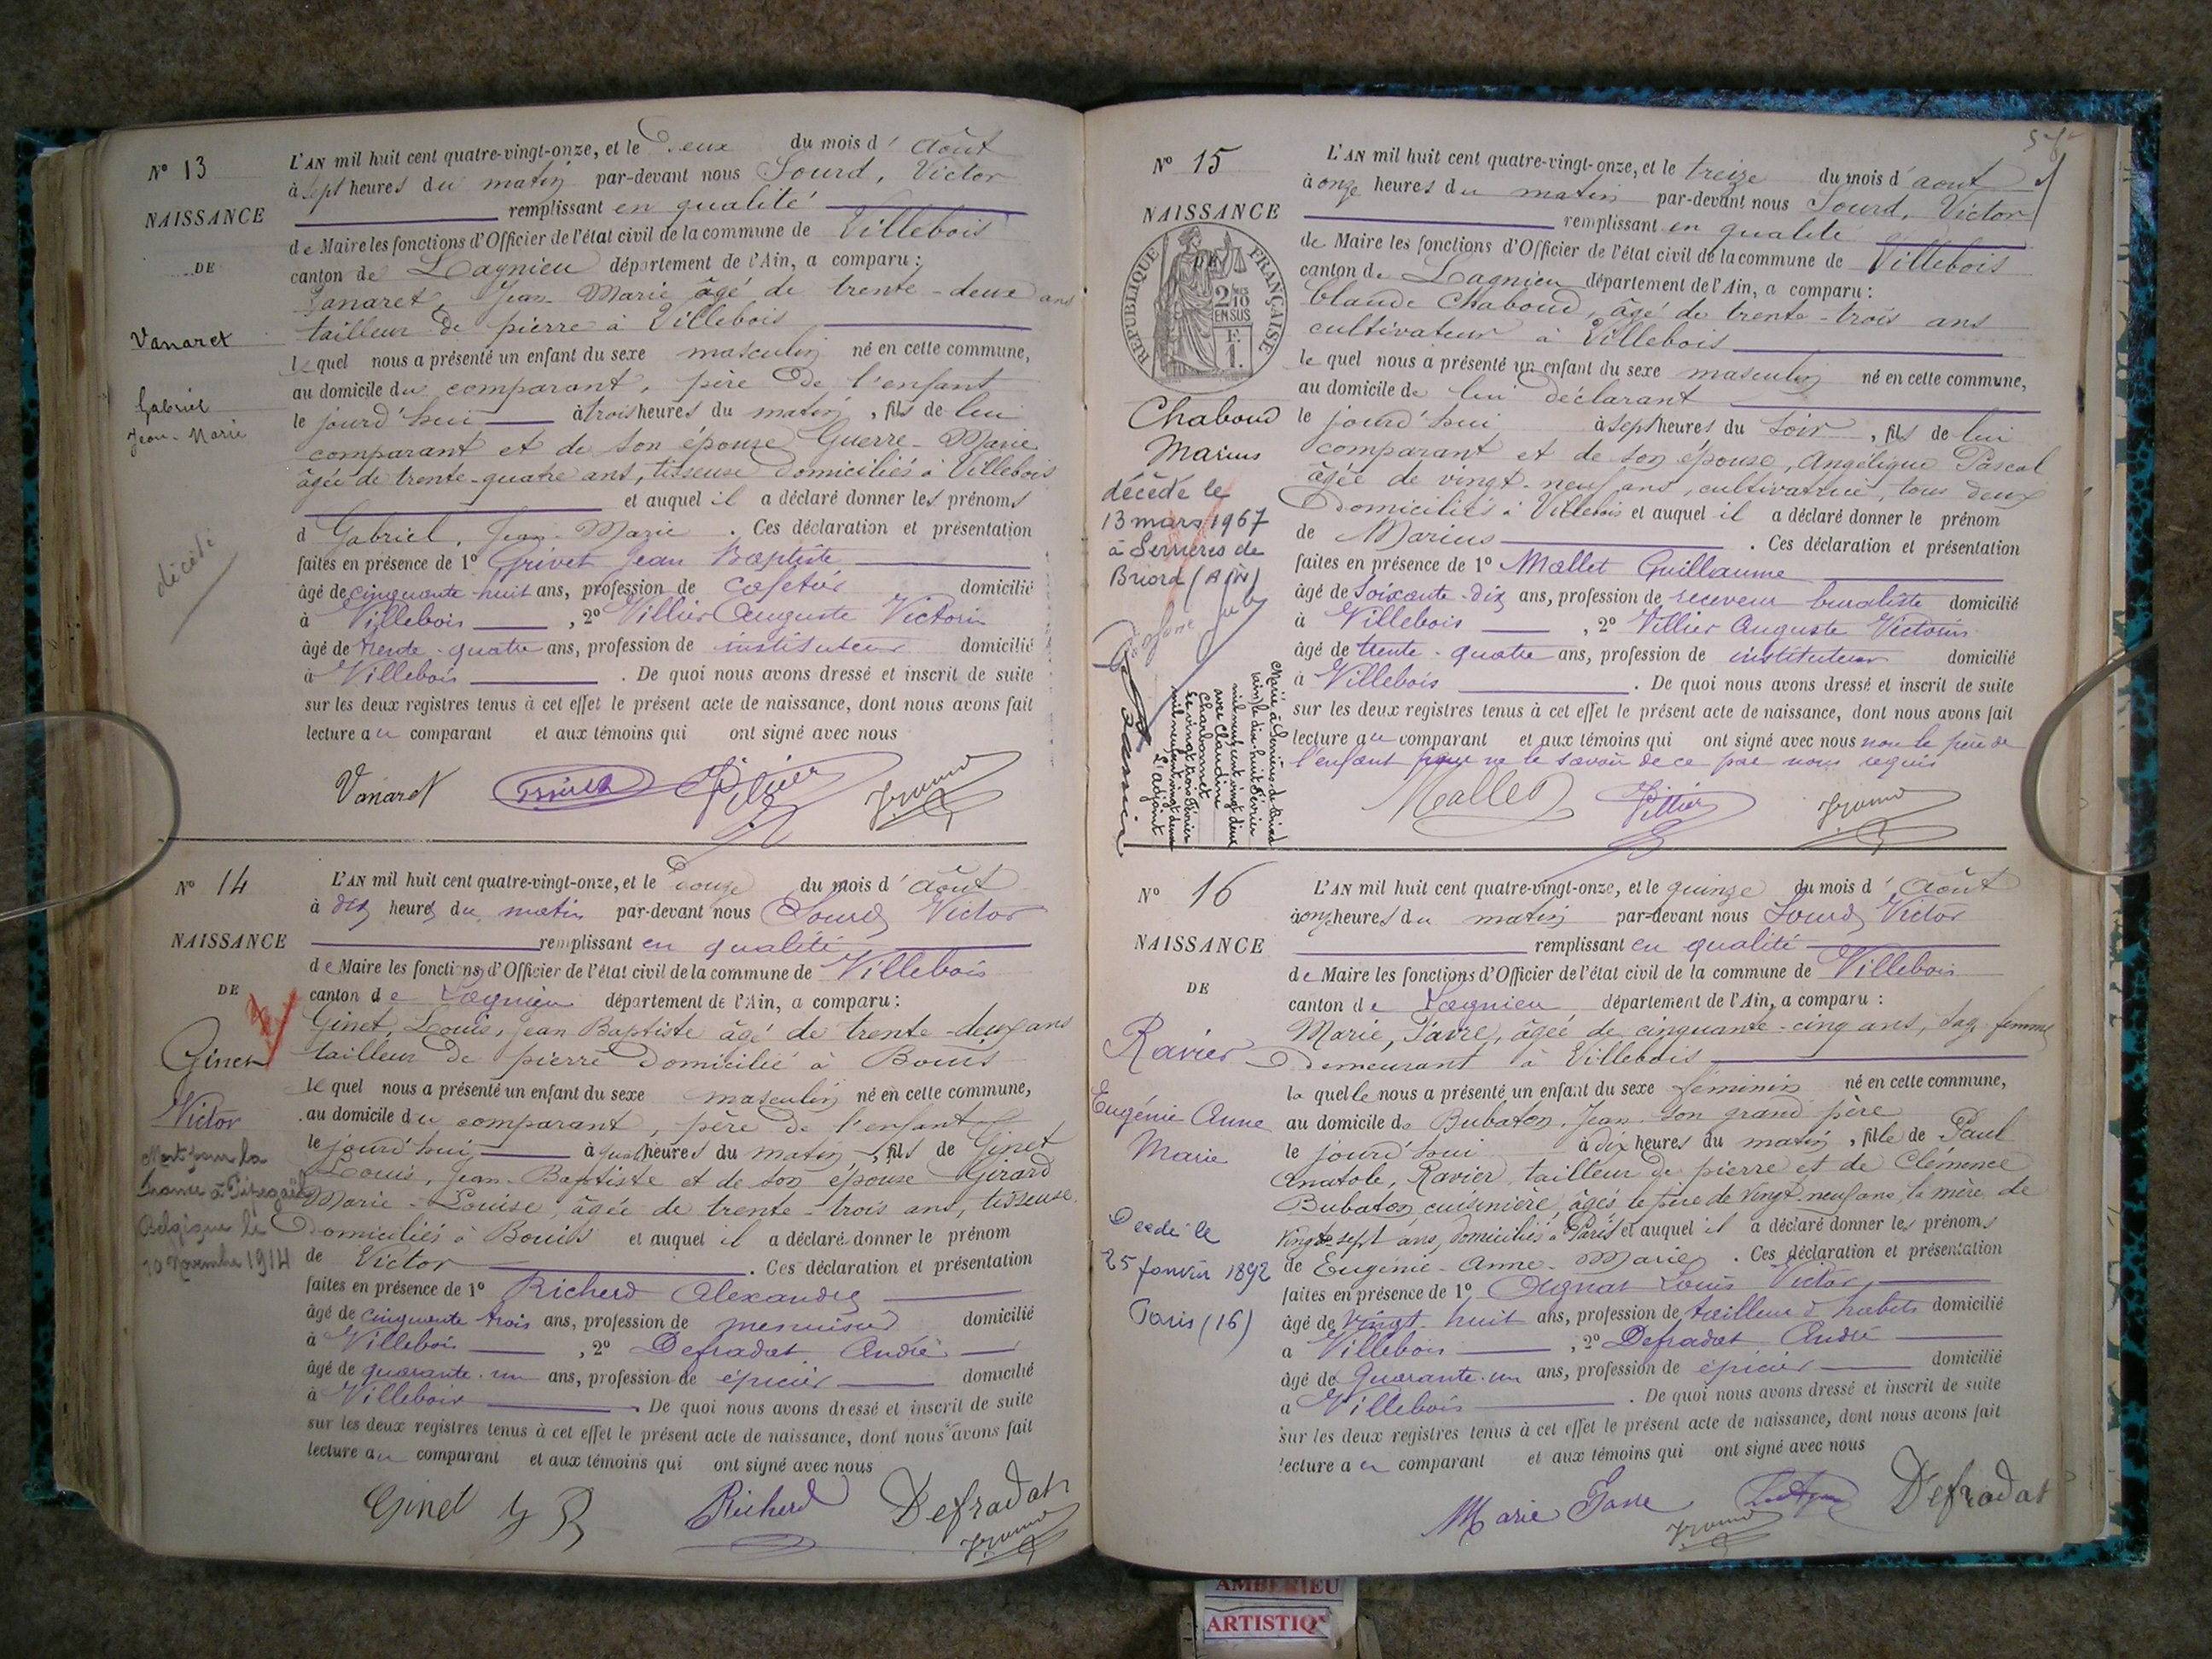 N° 13
NAISSANCE
DE
Vanaret
Gabriel
Jean-Marie
décédé
L'AN mil huit cent quatre-vingt-onze, et le Deux du mois d'Août
à sept heures du matin par-devant nous Sourd, Victor
remplissant en qualité
de Maire les fonctions d'Officier de l'état civil de la commune de Villebois
canton de Lagnieu département de l'Ain, a comparu :
Vanaret, Jean-Marie âgé de trente-deux ans
tailleur de pierre à Villebois
le quel nous a présenté un enfant du sexe masculin né en cette commune,
au domicile du comparant, père de l'enfant
le jourd'hui à trois heures du matin, fils de lui
comparant et de son épouse Guerre-Marie
âgée de trente-quatre ans, tisseuse domiciliés à Villebois
et auquel il a déclaré donner les prénoms
d Gabriel, Jean-Marie . Ces déclaration et présentation
faites en présence de 1° Grivet Jean Baptiste
âgé de cinquante-huit ans, profession de cafetier domicilié
à Villebois , 2° Villier Auguste Victorin
âgé de trente-quatre ans, profession de instituteur domicilié
à Villebois . De quoi nous avons dressé et inscrit de suite
sur les deux registres tenus à cet effet le présent acte de naissance, dont nous avons fait
lecture au comparant et aux témoins qui ont signé avec nous
Vanaret Villier
N° 14
NAISSANCE
DE
Ginet
Victor
Mort pour la
France à
Belgique le
10 Novembre 1914
L'AN mil huit cent quatre-vingt-onze, et le douze du mois d'Août
à dix heures du matin par-devant nous Sourd Victor
remplissant en qualité
de Maire les fonctions d'Officier de l'état civil de la commune de Villebois
canton de Lagnieu département de l'Ain, a comparu :
Ginet, Louis, Jean Baptiste âgé de trente-deux ans
tailleur de pierre domicilié à Bouis
le quel nous a présenté un enfant du sexe masculin né en cette commune,
au domicile du comparant, père de l'enfant
le jourd'hui à heures du matin, fils de Ginet
Louis, Jean-Baptiste et de son épouse Girard
Marie-Louise, âgée de trente-trois ans, tisseuse
domiciliés à Bouis et auquel il a déclaré donner le prénom
de Victor . Ces déclaration et présentation
faites en présence de 1° Richerd Alexandre
âgé de cinquante trois ans, profession de menuisier domicilié
à Villebois , 2° Defradat André
âgé de quarante-un ans, profession de épicier domicilié
à Villebois . De quoi nous avons dressé et inscrit de suite
sur les deux registres tenus à cet effet le présent acte de naissance, dont nous avons fait
lecture au comparant et aux témoins qui ont signé avec nous
Ginet Richerd Defradat
N° 15
NAISSANCE
DE
RÉPUBLIQUE FRANÇAISE
2/10
EN SUS
F.
1.
Chaboud
Marius
décédé le
13 mars 1967
à Serrières de
Briord (Ain)
Marié à Serrières-de-Briord
(Ain) le dix-huit Février
mil neuf cent vingt deux
avec Claudine
Charbonnet
Le vingt trois Février
mil neuf cent vingt deux
L'adjoint
L'AN mil huit cent quatre-vingt-onze, et le treize du mois d'aout
à onze heures du matin par-devant nous Sourd, Victor
remplissant en qualité
de Maire les fonctions d'Officier de l'état civil de la commune de Villebois
canton de Lagnieu département de l'Ain, a comparu :
Claude Chaboud, âgé de trente-trois ans
cultivateur à Villebois
le quel nous a présenté un enfant du sexe masculin né en cette commune,
au domicile de lui déclarant
le jourd'hui à sept heures du soir, fils de lui
comparant et de son épouse, Angélique Pascal
âgée de vingt-neuf ans, cultivatrice, tous deux
domiciliés à Villebois et auquel il a déclaré donner le prénom
de Marius . Ces déclaration et présentation
faites en présence de 1° Mallet Guillaume
âgé de soixante-dix ans, profession de receveur buraliste domicilié
à Villebois , 2° Villier Auguste Victorin
âgé de trente-quatre ans, profession de instituteur domicilié
à Villebois . De quoi nous avons dressé et inscrit de suite
sur les deux registres tenus à cet effet le présent acte de naissance, dont nous avons fait
lecture au comparant et aux témoins qui ont signé avec nous non le père de
l'enfant pour ne le savoir de ce par nous requis
Mallet Villier
N° 16
NAISSANCE
DE
Ravier
Eugénie Anne
Marie
Décédé le
25 Janvier 1892
Paris (16)
L'AN mil huit cent quatre-vingt-onze, et le quinze du mois d'Août
à onze heures du matin par-devant nous Sourd Victor
remplissant en qualité
de Maire les fonctions d'Officier de l'état civil de la commune de Villebois
canton de Lagnieu département de l'Ain, a comparu :
Marie, Favre, âgée de cinquante-cinq ans, sage-femme
demeurant à Villebois
la quelle nous a présenté un enfant du sexe féminin né en cette commune,
au domicile de Bubaton, Jean son grand père
le jourd'hui à dix heures du matin, fille de Paul
Anatole, Ravier, tailleur de pierre et de Clémence
Bubaton, cuisinière, âgés, le père de vingt-neuf ans, la mère de
vingt-sept ans, domiciliés à Paris et auquel il a déclaré donner les prénoms
de Eugénie-Anne-Marie . Ces déclaration et présentation
faites en présence de 1° Louis Victor
âgé de vingt huit ans, profession de tailleur d'habits domicilié
à Villebois , 2° Defradat André
âgé de quarante-un ans, profession de épicier domicilié
à Villebois . De quoi nous avons dressé et inscrit de suite
sur les deux registres tenus à cet effet le présent acte de naissance, dont nous avons fait
lecture au comparant et aux témoins qui ont signé avec nous
Marie Favre Defradat
AMBERIEU
ARTISTIQ